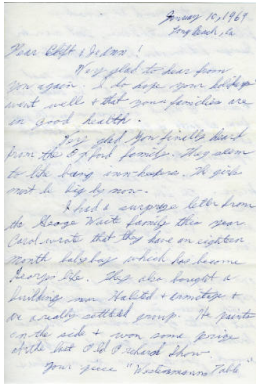 January 10, 1969
Long Beach, Ca
Dear Cliff &
Very glad to hear from
you again. I do hope your holidays
went well & that your families are
in good health.
Very glad you finally heard
from the family. They seem
to like being The girls
must be big by now.
I had a surprise letter from
the George Wait family this year
Carol wrote that they have an eighteen
month baby boy which has become
George's life. They also bought a
building near &
are really settled He paints
on the side & won some prize
at the last Old Orchard Show.
Your piece "